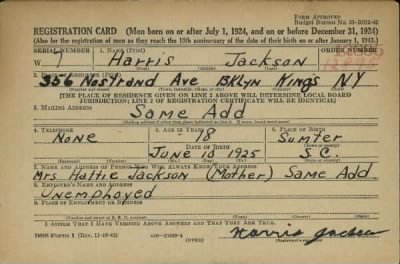 FORM APPROVED
Budget Bureau No. 33-R012-42
REGISTRATION CARD (Men born on or after July 1, 1924, and on or before December 31, 1924)
(Also for the registration of men as they reach the 18th anniversary of the date of their birth on or after January 1, 1943.)
SERIAL NUMBER 1. NAME (Print) ORDER NUMBER
W 1 Harris Jackson
(First) (Middle) (Last)
2. PLACE OF RESIDENCE (Print)
356 Nostrand Ave BKlyn Kings N.Y
(Number and street) (Town, township, village, or city) (County) (State)
[THE PLACE OF RESIDENCE GIVEN ON LINE 2 ABOVE WILL DETERMINE LOCAL BOARD
JURISDICTION; LINE 2 OF REGISTRATION CERTIFICATE WILL BE IDENTICAL]
3. MAILING ADDRESS
Same Add
4. TELEPHONE 5. AGE IN YEARS 6. PLACE OF BIRTH
None 18 Sumter
DATE OF BIRTH
June 10 1925 S.C.
7. NAME AND ADDRESS OF PERSON WHO WILL ALWAYS KNOW YOUR ADDRESS
Mrs Hattie Jackson (Mother) Same Add
8. EMPLOYER'S NAME AND ADDRESS
Unemployed
9. PLACE OF EMPLOYMENT OR BUSINESS
(Number and street or R. F. D. number) (Town) (County) (State)
I AFFIRM THAT I HAVE VERIFIED ABOVE ANSWERS AND THAT THEY ARE TRUE.
DSS Form 1 (Rev. 11-16-42) (OVER) Harris Jackson